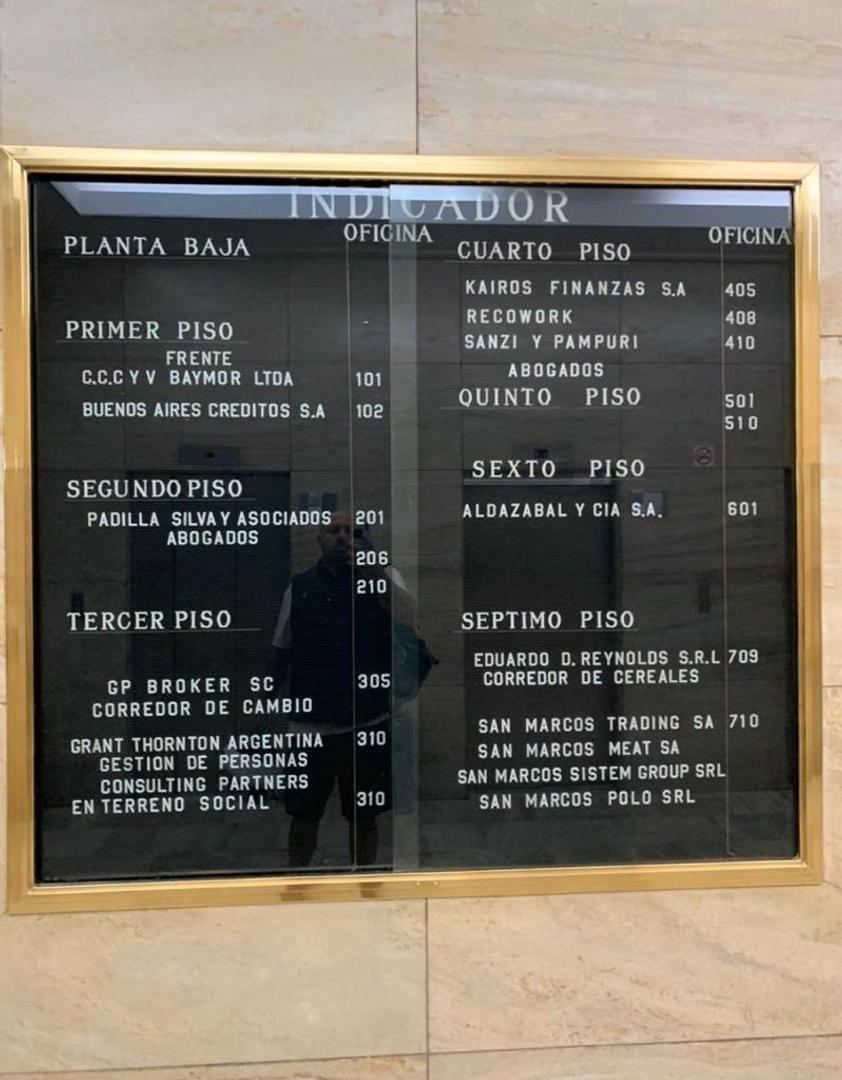 INDICADOR
OFICINA
PLANTA BAJA
PRIMER PISO
FRENTE
C.C.C Y V BAYMOR LTDA 101
BUENOS AIRES CREDITOS S.A 102
SEGUNDO PISO
PADILLA SILVA Y ASOCIADOS 201
ABOGADOS
206
210
TERCER PISO
GP BROKER SC 305
CORREDOR DE CAMBIO
GRANT THORNTON ARGENTINA 310
GESTION DE PERSONAS
CONSULTING PARTNERS
EN TERRENO SOCIAL 310
OFICINA
CUARTO PISO
KAIROS FINANZAS S.A 405
RECOWORK 408
SANZI Y PAMPURI 410
ABOGADOS
QUINTO PISO 501
510
SEXTO PISO
ALDAZABAL Y CIA S.A. 601
SEPTIMO PISO
EDUARDO D. REYNOLDS S.R.L 709
CORREDOR DE CEREALES
SAN MARCOS TRADING SA 710
SAN MARCOS MEAT SA
SAN MARCOS SISTEM GROUP SRL
SAN MARCOS POLO SRL